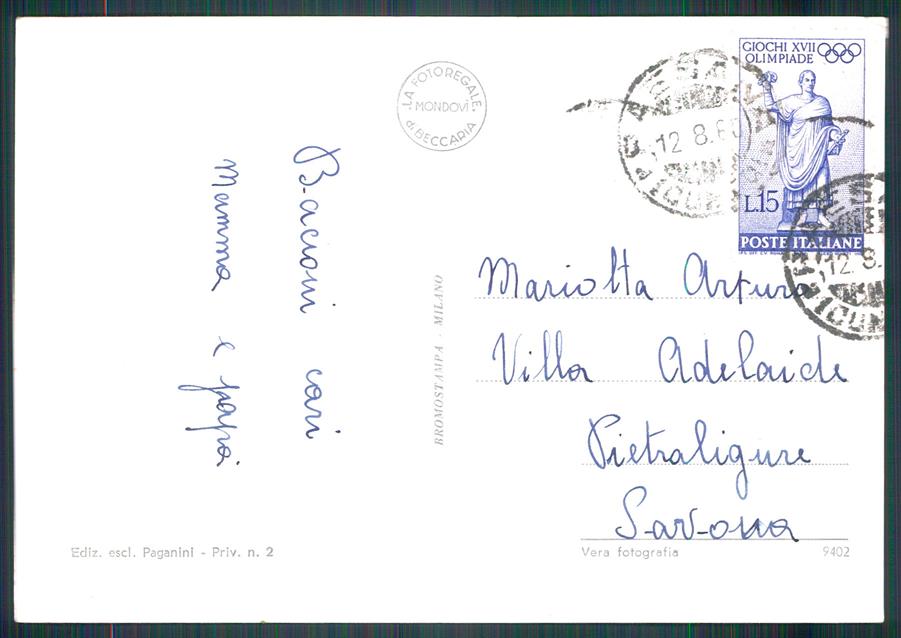 Bacioni cari
Mamma e papà
LA FOTOREGALE
MONDOVÌ
d. BECCARIA
BROMOSTAMPA - MILANO
GIOCHI XVII
OLIMPIADE
L.15
POSTE ITALIANE
12.8.60
12.8.
Mariolta Arturo
Villa Adelaide
Pietraligure
Savona
Ediz. escl. Paganini - Priv. n. 2
Vera fotografia
9402